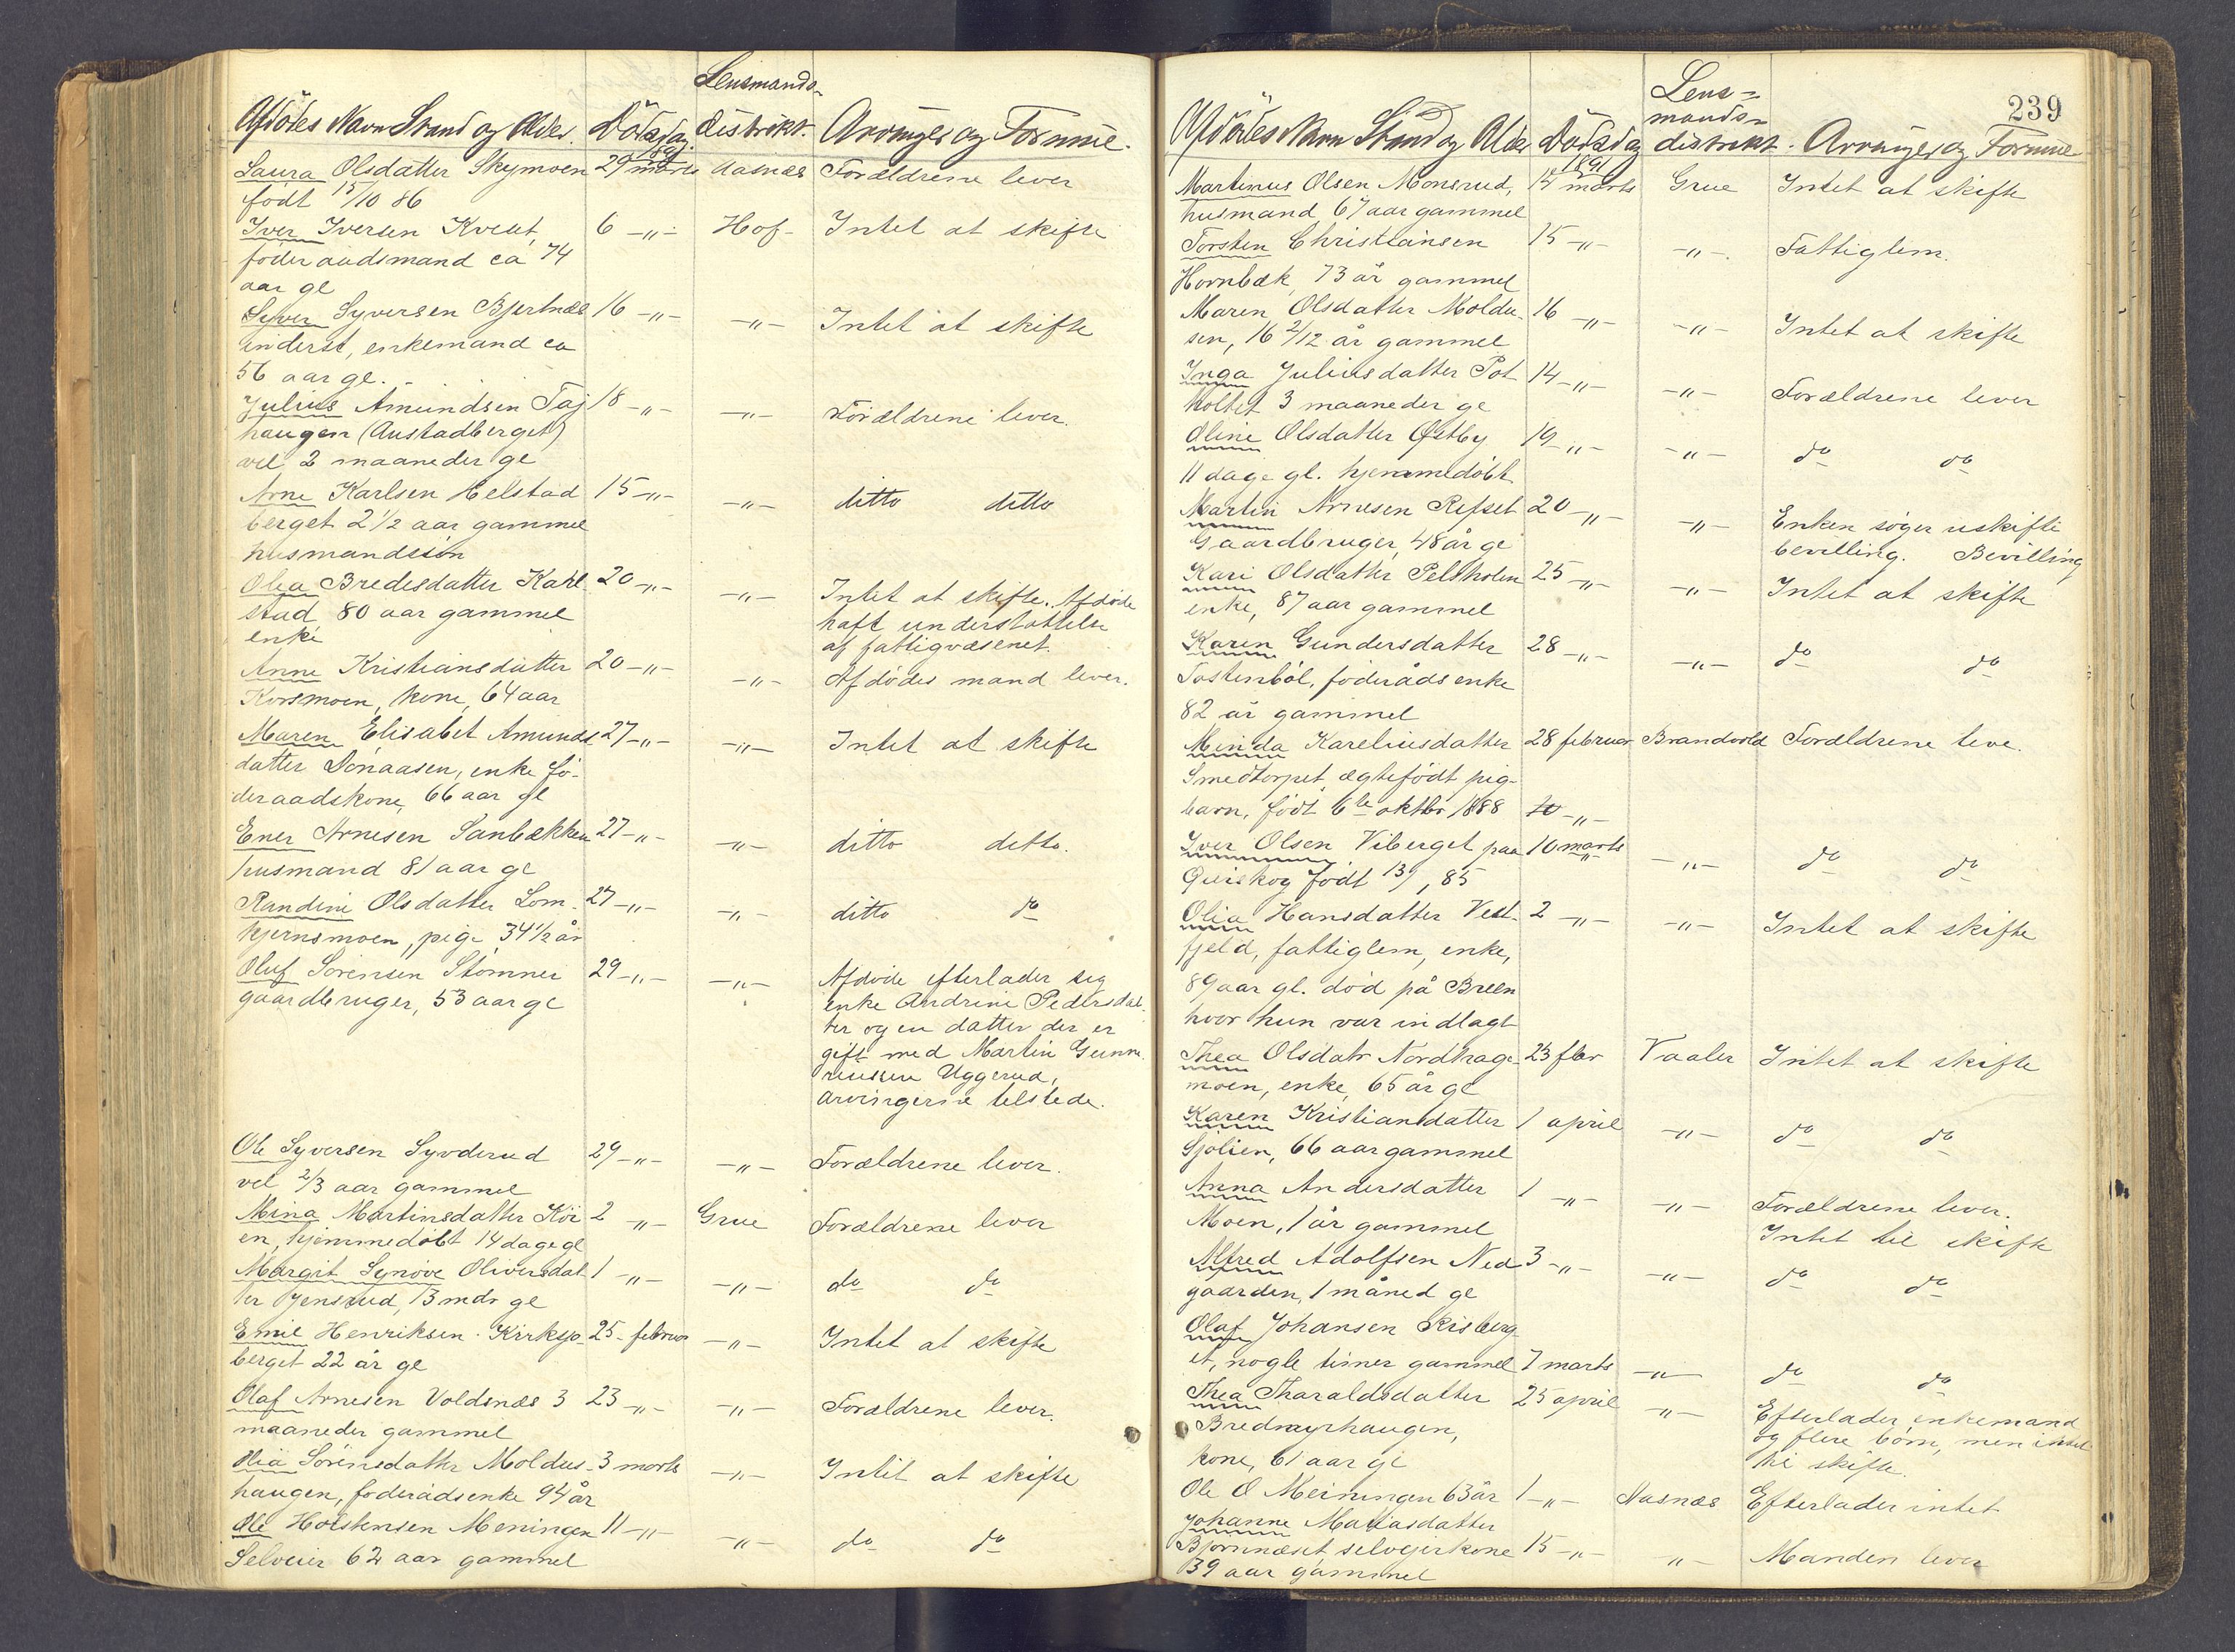 Lensmands-
Afdödes Navn Stand og Alder. Dödsdag. distrikt. Arvinger og Formue.
Laura Olsdatter Skymoen 29 marts Aasnæs Forældrene lever
født 15/10 86
Iver Iversen Kveat, 6 -"- Hof- Intet at skifte
föderaadsmand ca 74
aar gl
Syver Syversen Bjertnæs 16 -"- -"- Intet at skifte
inderst, enkemand ca
56 aar gl. -
Julius Amundsen Taj 18 -"- -"- Forældrene lever.
haugen (Austadberget)
vel 2 maaneder gl
Arne Karlsen Helstad 15 -"- -"- ditto ditto
berget 2 1/2 aar gammel
husmandssön
Olea Bredesdatter Karl 20 -"- -"- Intet at skifte. Afdöde
stad 80 aar gammel haft understöttelse
enke af fattigvæsenet.
Anne Kristiansdatter 20 -"- -"- Afdödes mand lever.
Korsmoen, kone, 64 aar
Maren Elisabet Amunds 27 -"- -"- Intet at skifte
datter Sönaasen, enke fö-
deraadskone, 66 aar gl
Ener Arnesen Sanbækken 27 -"- -"- ditto ditto.
husmand 81 aar gl
Randine Olsdatter Lom- 27 -"- -"- ditto do
kjernsmoen, pige 34 1/2 år
Oluf Sörensen Stömner 29 -"- -"- Afdöde efterlader sig
gaardbruger, 53 aar gl enke Andrine Pedersdat-
ter og en datter der er
gift med Martin Gunne
riussen Uggerud,
arvingerne tilstede.
Ole Syversen Syverud 29 -"- -"- Forældrene lever.
vel 2/3 aar gammel
Mina Martinsdatter Köi 2 -"- Grue Forældrene lever
en, hjemmedöbt 14 dage gl
Margit Synöve Oliversdat 1 -"- -"- do do
ter Jensrud, 13 mdr gl
Emil Henriksen Kirksjo- 25- februar -"- Intet at skifte
berget 22 år gl
Olaf Arnesen Voldsnæs 3 23 -"- -"- Forældrene lever.
maaneder gammel
Olia Sörensdatter Moldus- 3 marts -"- Intet at skifte
haugen, föderådsenke 94 år
Ole Holstensen Meningen 11 -"- -"- do do
Selveier 62 aar gammel
239
Lens-
mands-
Afdödes Navn Stand og Alder Dödsdag distrikt. Arvinger og Formue
Martinus Olsen Monsrud, 14 marts Grue Intet at skifte
husmand, 67 aar gammel
Torsten Christiansen 15 -"- -"- Fattiglem.
Hornbæk, 73 år gammel
Maren Olsdatter Moldu- 16 -"- -"- Intet at skifte
sen, 16 2/12 år gammel
Inga Juliusdatter Pot 14 -"- -"- Forældrene lever
holtet 3 maaneder gl
Oline Olsdatter Östby 19 -"- -"- do do
11 dage gl. hjemmedöbt
Martin Arnesen Refset 20 -"- -"- Enken söger uskifte
Gaardbruger, 48 år gl bevilling. Bevilling
Kari Olsdatter Pelsholen 25 -"- -"- Intet at skifte
enke, 87 aar gammel
Karen Gundersdatter 28 -"- -"- do do
Tostenböl, föderåds enke
82 år gammel
Minda Kareliusdatter 28 februar Brandvold Forældrene leve.
Smedtorpet, ægtefödt pig-
barn, födt 6te oktbr 1888
Iver Olsen Viberget paa 10 marts -"- do do
Qvisköy födt 13/1, 85
Olia Hansdatter Vest- 2 -"- -"- Intet at skifte
fjeld, fattiglem, enke,
89 aar gl. död på Breen
hvor hun var indlagt
Thea Olsdatr Nordhage- 23 fbr Vaaler Intet at skifte
moen, enke, 65 år gl
Karen Kristiansdatter 1 april -"- do do
Sjölien, 66 aar gammel
Anna Andersdatter 1 -"- -"- Forældrene lever.
Moen, 1 år gammel Intet til skifte
Alfred Adolfsen Ned 3 -"- -"- do do
gaarden, 1 måned gl
Olaf Johansen Risberg
et, nogle timer gammel 7 marts -"- do do
Thea Tharaldsdatter 25 april -"- Efterlader enkemand
Bredmyrhaugen, og flere börn, men intet
kone, 61 aar gl til skifte.
Ole O Meiningen 63 år 1 -"- Aasnæs Efterlader intet
Johanne Matiasdatter
Björnnæset, selvejerkone 15 -"- -"- Manden lever
39 aar gammel